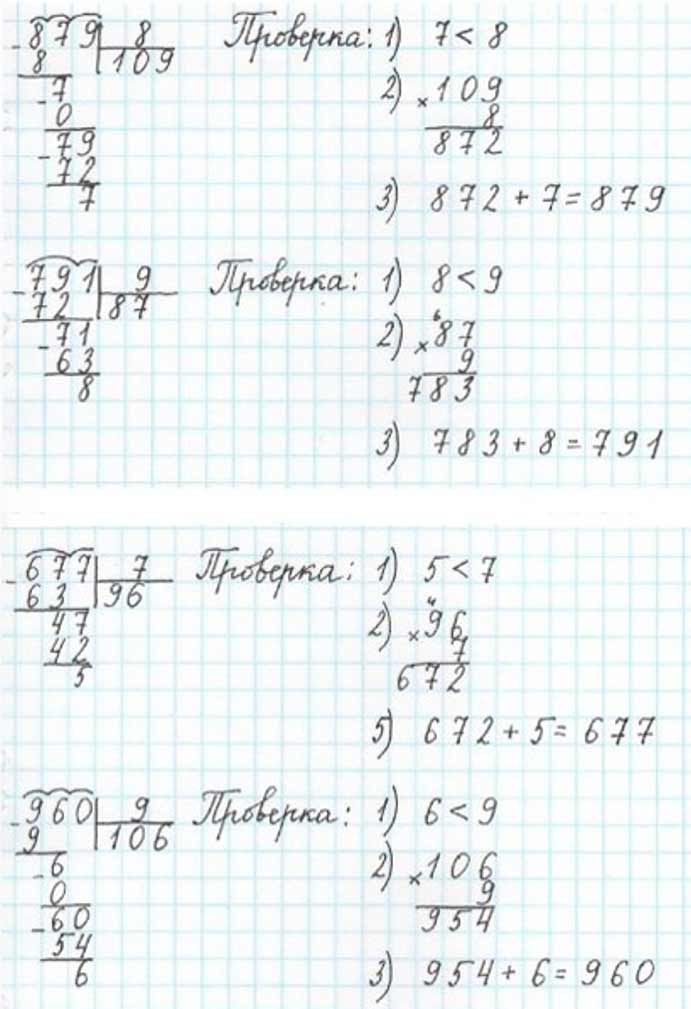 879 | 8 Проверка: 1) 7 < 8
8 109
7 2) × 109
0 8
79 872
72
7 3) 872 + 7 = 879
791 | 9 Проверка: 1) 8 < 9
72 87
71 2) × 87 6
63 9
8 783
3) 783 + 8 = 791
677 | 7 Проверка: 1) 5 < 7
63 96
47 2) × 96 4
42 7
5 672
5) 672 + 5 = 677
960 | 9 Проверка: 1) 6 < 9
9 106
6 2) × 106
0 9
60 954
54
6 3) 954 + 6 = 960